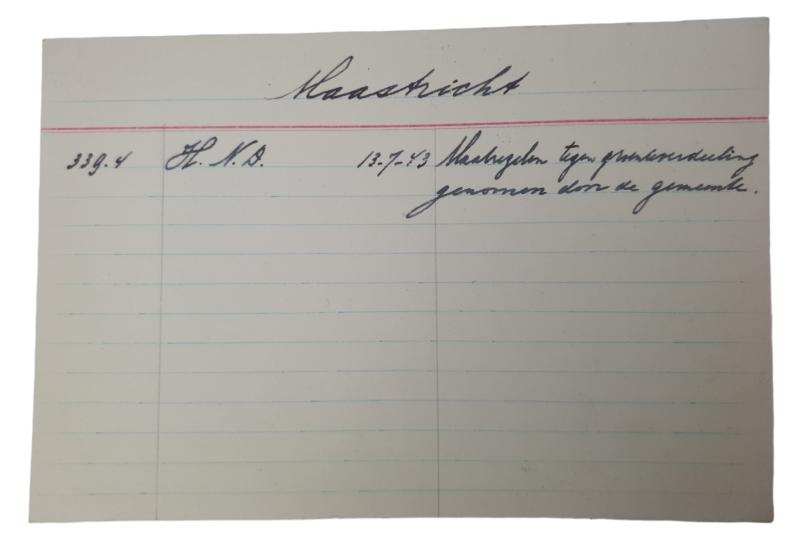 Maastricht
339.4 H. N. D. 13-7-43 Maatregelen tegen groenteverdeeling
genomen door de gemeente.